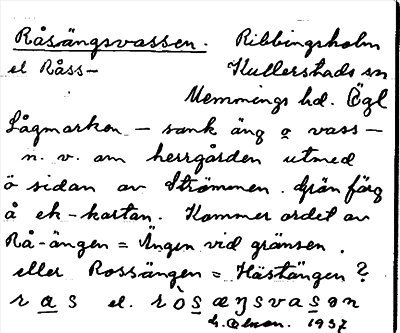 Råsängsvassen. Ribbingsholm
el Råss- Kullerstads sn
Memmings hd. Ögl
Lågmarken – sank äng o vass –
n. v. om herrgården utmed
ö sidan av Strömmen. Grön färg
å ek-kartan. Kommer ordet av
Rå-ängen = Ängen vid gränsen.
eller Rossängen = Hästängen?
r a s el. r ò s æŋsvasən
1937